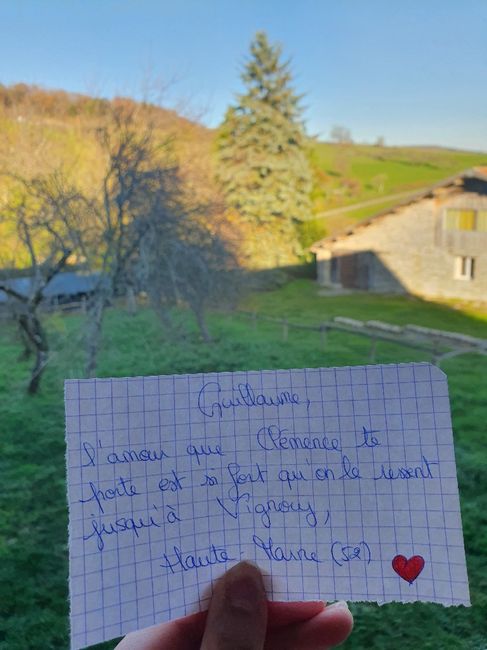 Guillaume,
L'amour que Clémence te
porte est si fort qu'on le ressent
jusqu'à Vignory,
Haute-Marne (52)